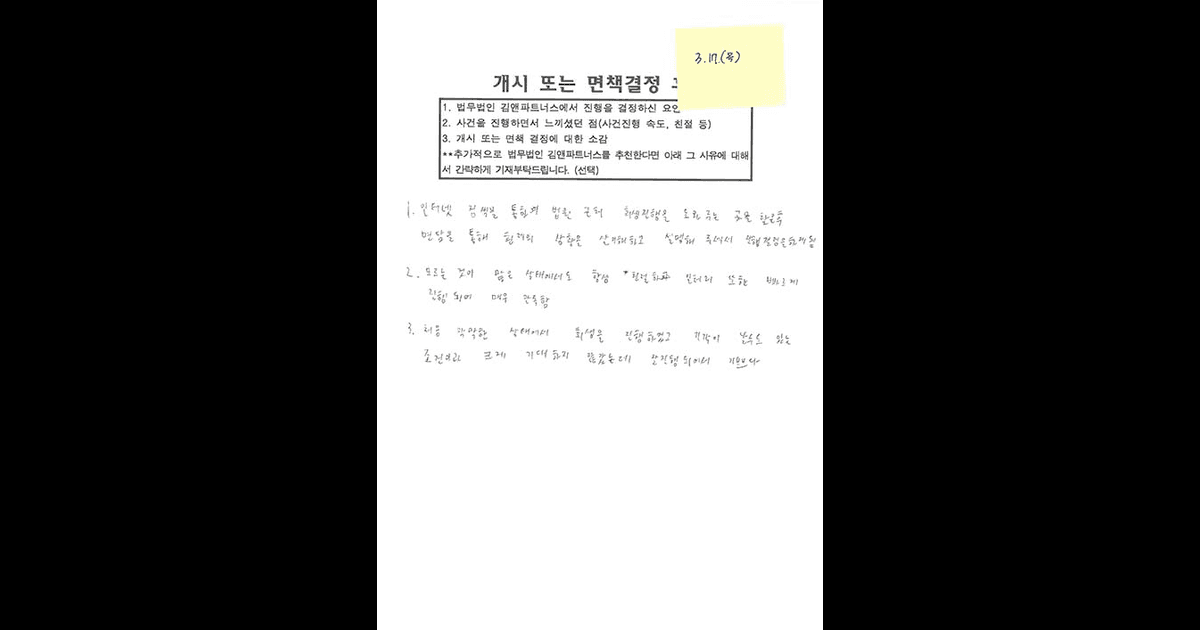 3.17.(목)
개시 또는 면책결정
1. 법무법인 김앤파트너스에서 진행을 결정하신 요인
2. 사건을 진행하면서 느끼셨던 점(사건진행 속도, 친절 등)
3. 개시 또는 면책 결정에 대한 소감
**추가적으로 법무법인 김앤파트너스를 추천한다면 아래 그 사유에 대해
서 간략하게 기재부탁드립니다. (선택)
1. 인터넷 검색을 통하여 법원 근처 회생진행을 도와 주는 곳을 찾은후
면담을 통해 현재의 상황을 설명해 주셔서 진행결정을하게됨
2. 모르는 것이 많은 상태에서도 항상 친절하고 일처리 또한 빠르게
진행 되어 매우 만족함
3. 처음 막막한 상태에서 회생을 진행하였고 기각이 될수도 있는
조건이라 크게 기대하지 않았는데 잘진행되어서 기쁘다